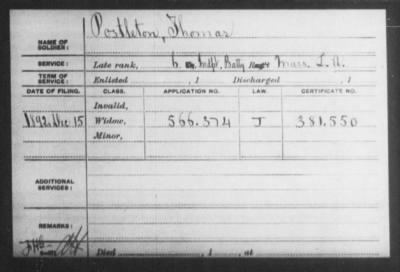 Postleton, Thomas
NAME OF SOLDIER:
SERVICE: Late rank, 6 Indpt. Batty Mass. L. A.
TERM OF SERVICE: Enlisted , 1 Discharged , 1
DATE OF FILING. CLASS. APPLICATION NO. LAW. CERTIFICATE NO.
Invalid,
1892, Dec 15 Widow, 566.374 J 381.550
Minor,
ADDITIONAL SERVICES:
REMARKS:
Died , 1 , at